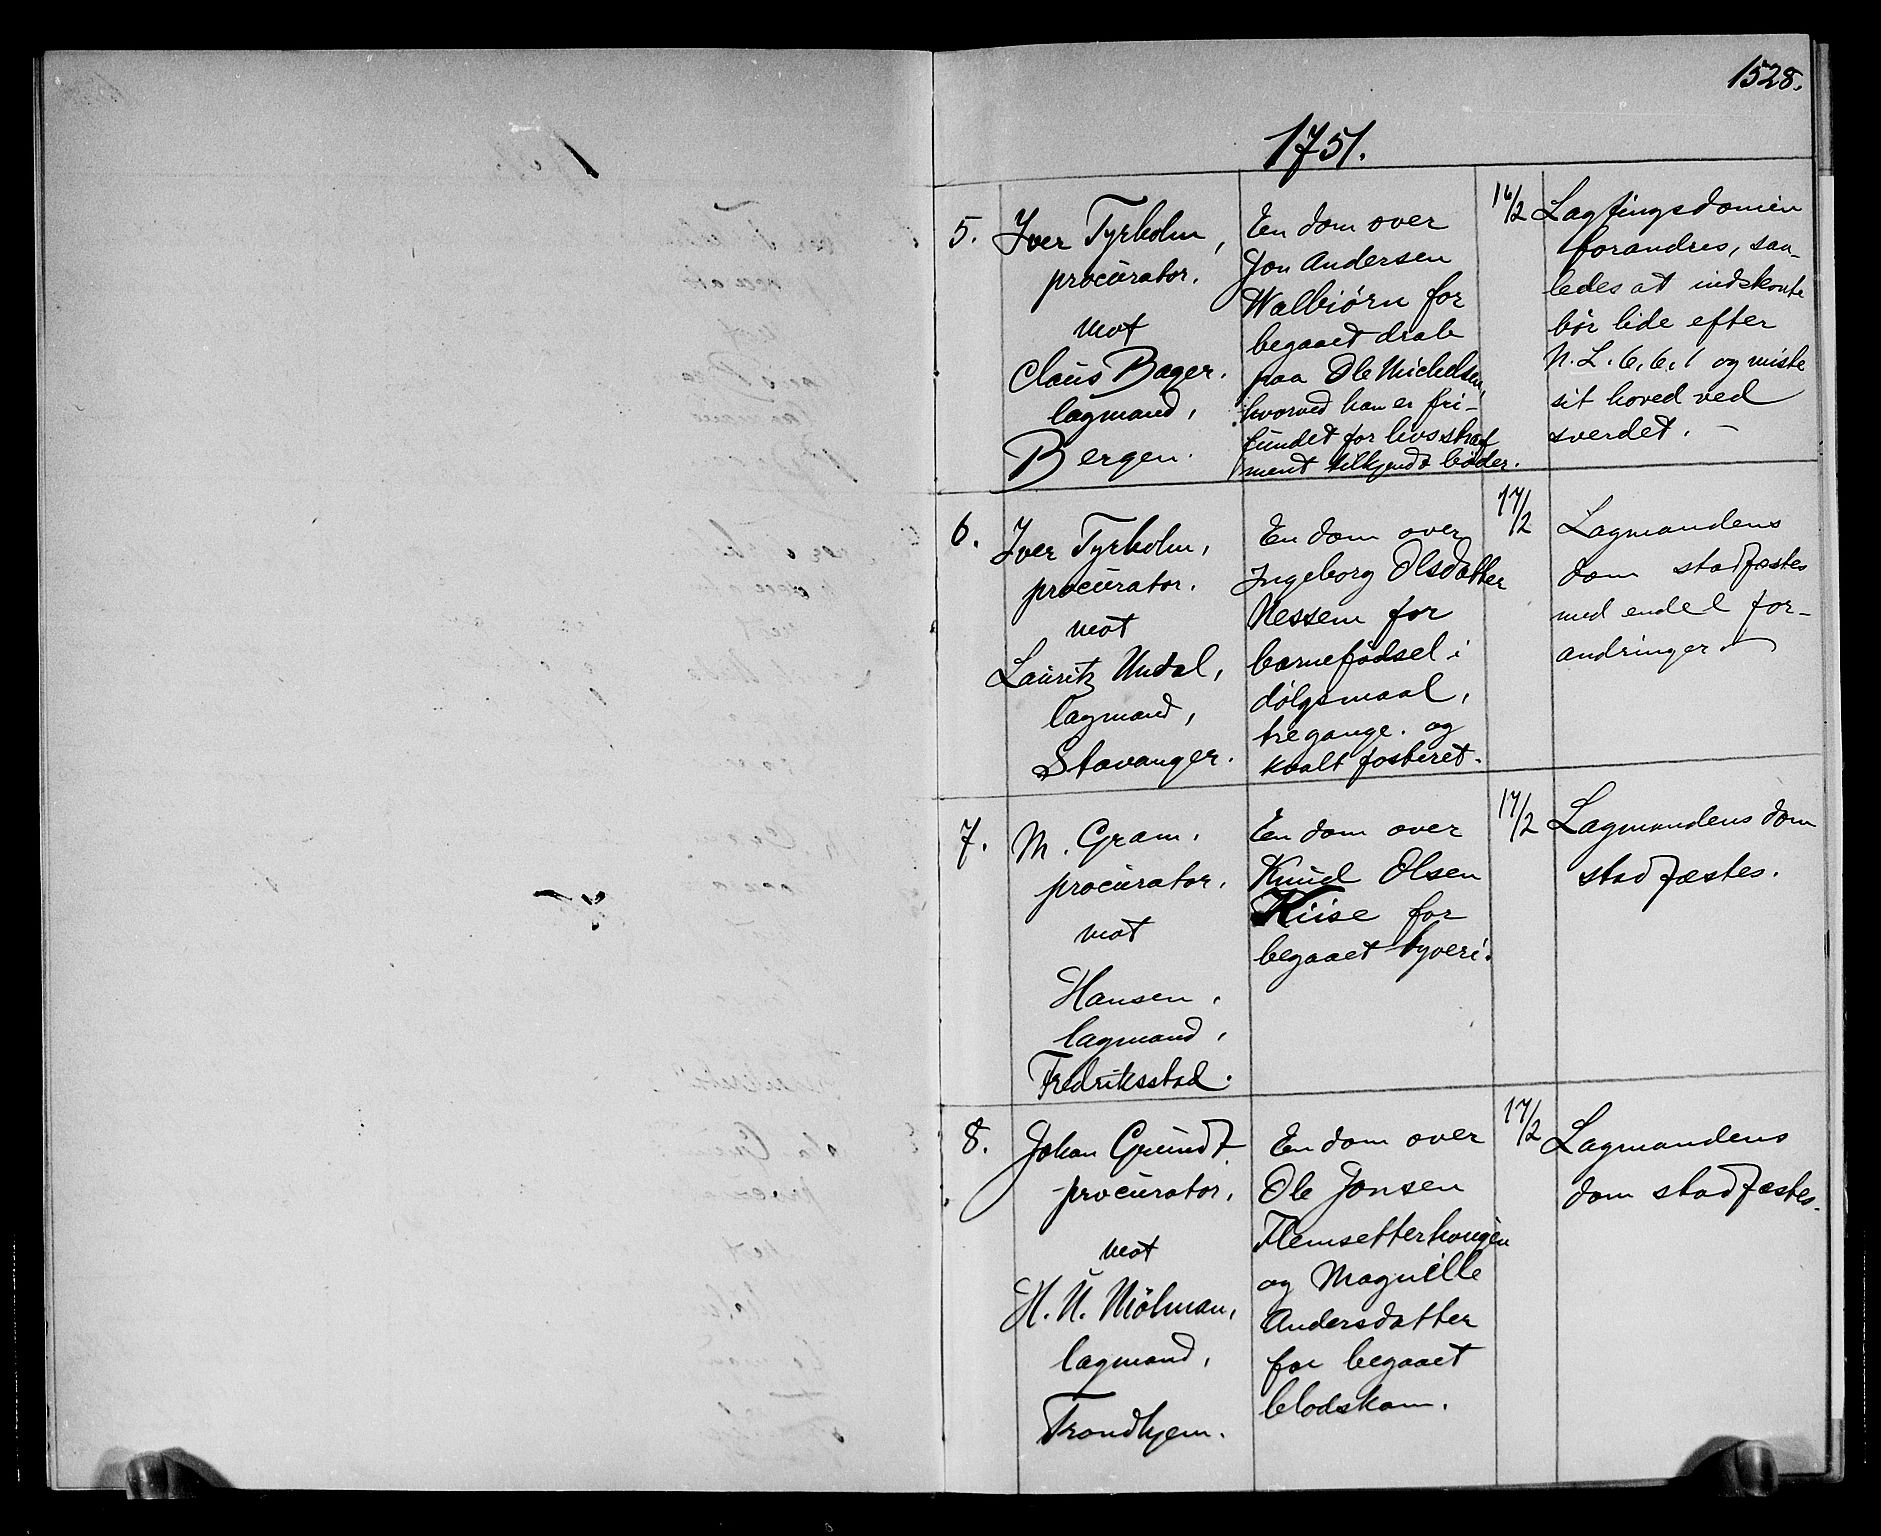 1528.
1751.
5.
Iver Tyrholm,
procurator.
mot
Claus Bager.
lagmand,
Bergen.
En dom over
Jon Andersen
Walbiørn for
begaaet drab
paa Ole Michelsen,
hvorved han er fri-
fundet for livsstraf
ment tilkjendt bøder.
16/2
Lagtingsdomen
forandres, saa-
ledes at indstevnte
bør lide efter
N. L. 6, 6, 1 og miste
sit hoved ved
sverdet. -
6.
Iver Tyrholm,
procurator.
mot
Lauritz Undal,
lagmand,
Stavanger.
En dom over
Ingeborg Olsdatter
Nessem for
barnefødsel i
dølgsmaal,
tregange. og
kvalt fosteret.
17/2
Lagmandens
dom stadfæstes
med endel for-
andringer.
7.
M. Gram.
procurator.
mot
Hansen,
lagmand,
Fredriksstad.
En dom over
Knud Olsen
Kiise for
begaaet tyveri.
17/2
Lagmandens dom
stadfæstes.
8.
Johan Grundt
procurator.
mot
H. U. Mölman,
lagmand,
Trondhjem.
En dom over
Ole Jonsen
Flemsetterhougen
og Magnille
Andersdatter
for begaaet
blodskam.
17/2
Lagmandens
dom stadfæstes.